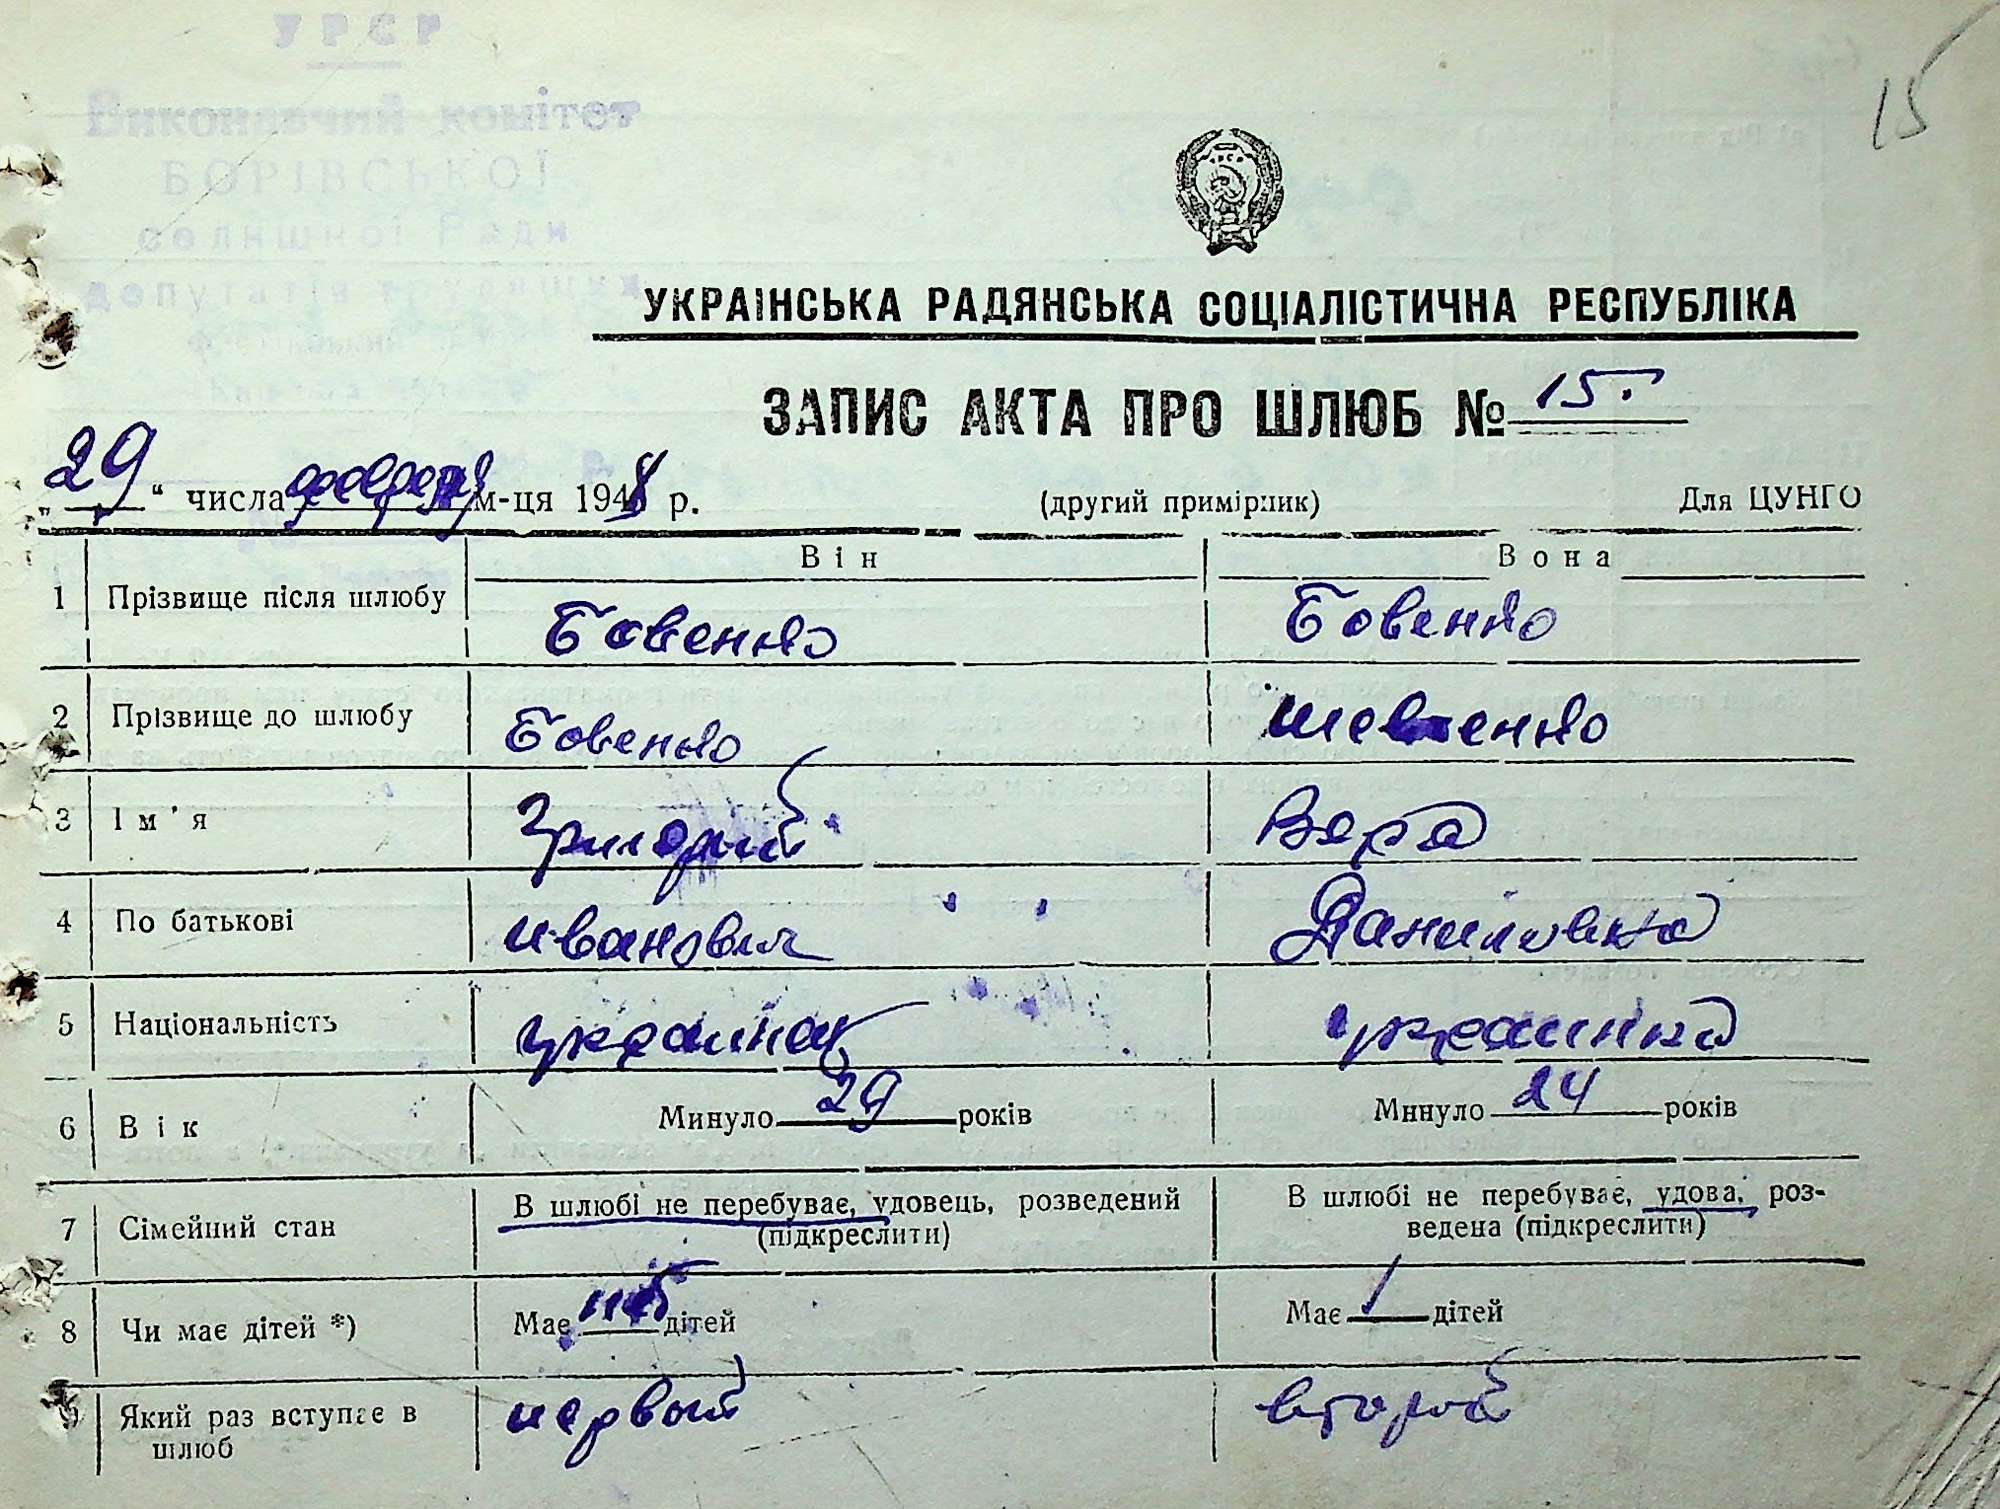 УРСР
Виконавчий комітет
БОРІВСЬКОЇ
селищної Ради
депутатів трудящих
15
УКРАЇНСЬКА РАДЯНСЬКА СОЦІАЛІСТИЧНА РЕСПУБЛІКА
ЗАПИС АКТА ПРО ШЛЮБ № 15.
„29“ числа февраля м-ця 1948 р. (другий примірник) Для ЦУНГО
Він Вона
1 Прізвище після шлюбу Бовенко Бовенко
2 Прізвище до шлюбу Бовенко Шевченко
3 Ім'я Григорий Вера
4 По батькові Иванович Даниловна
5 Національність украинец украинка
6 Вік Минуло 29 років Минуло 24 років
7 Сімейний стан В шлюбі не перебуває, удовець, розведений (підкреслити) В шлюбі не перебуває, удова, роз-
ведена (підкреслити)
8 Чи має дітей *) Має нет дітей Має 1 дітей
9 Який раз вступає в шлюб первый второй